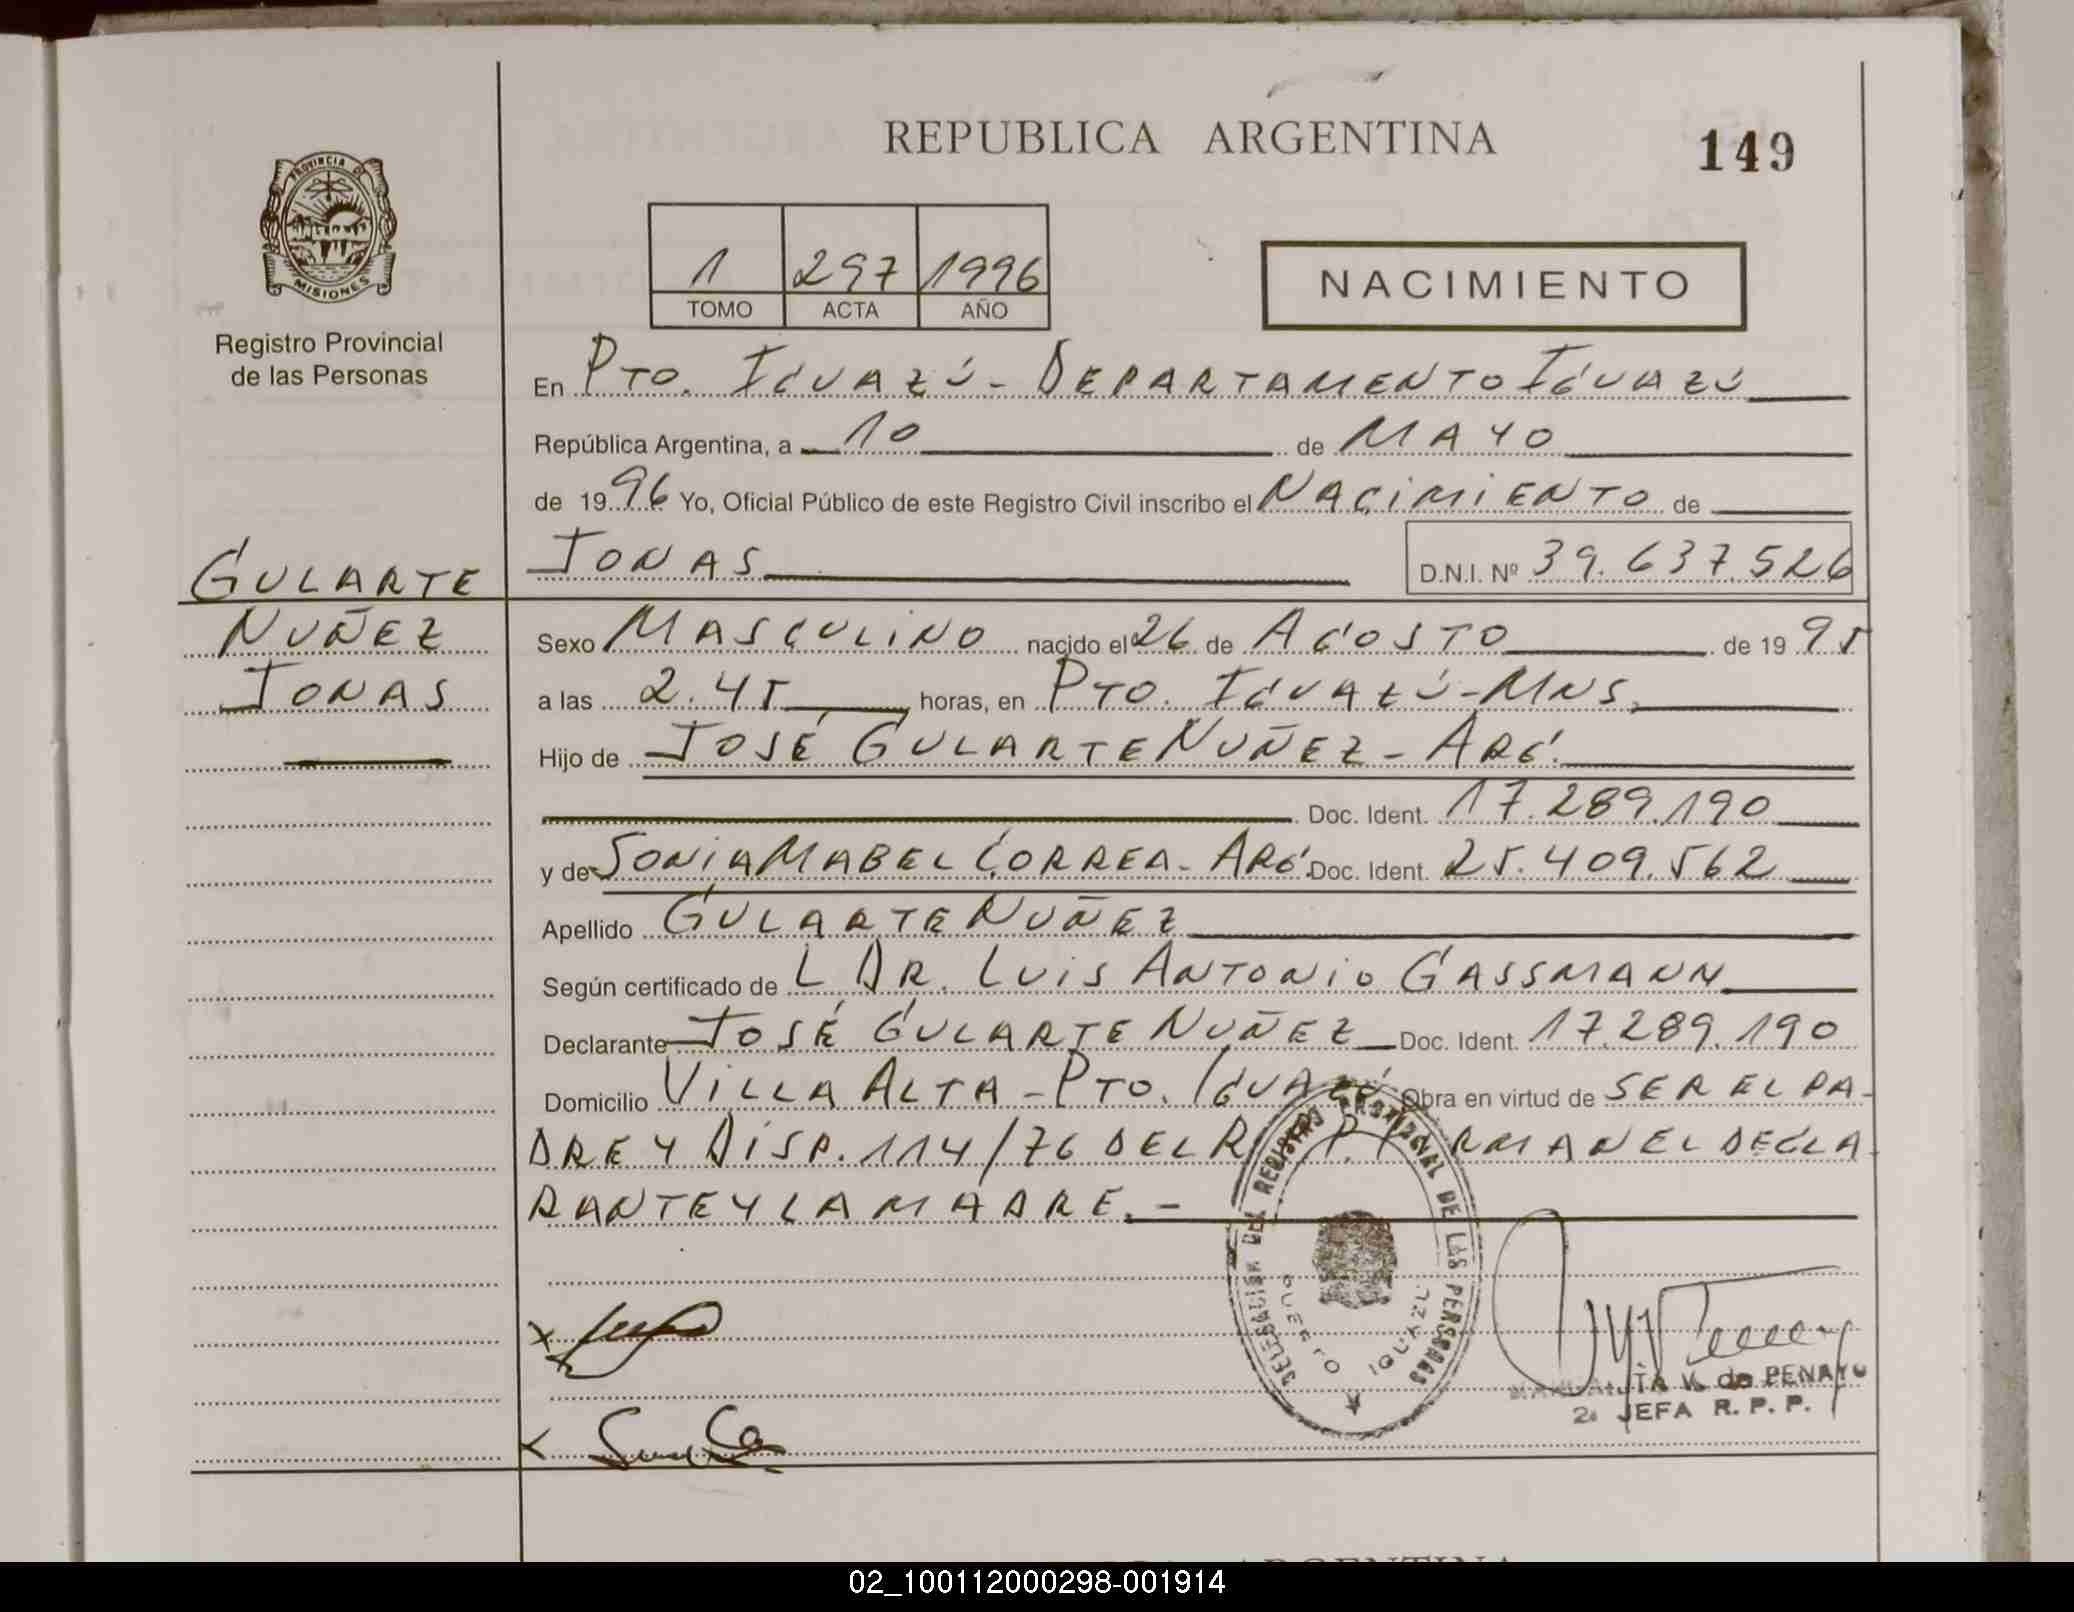 REPUBLICA ARGENTINA
149
PROVINCIA DE
MISIONES
Registro Provincial
de las Personas
1 297 1996
TOMO ACTA AÑO
NACIMIENTO
En PTO. IGUAZÚ - DEPARTAMENTO IGUAZÚ
República Argentina, a 10 de MAYO
de 1996 Yo, Oficial Público de este Registro Civil inscribo el NACIMIENTO de
JONAS D.N.I. Nº 39.637.526
GULARTE
NUÑEZ
JONAS
Sexo MASCULINO nacido el 26 de AGOSTO de 1995
a las 2.45 horas, en PTO. IGUAZÚ - MNS.
Hijo de JOSÉ GULARTE NUÑEZ - ARG.
Doc. Ident. 17.289.190
y de SONIA MABEL CORREA - ARG. Doc. Ident. 25.409.562
Apellido GULARTE NUÑEZ
Según certificado de L DR. LUIS ANTONIO GASSMANN
Declarante JOSÉ GULARTE NUÑEZ Doc. Ident. 17.289.190
Domicilio VILLA ALTA - PTO. IGUAZÚ Obra en virtud de SER EL PA-
DRE Y DISP. 114/76 DEL R.P.P. FIRMAN EL DECLA-
RANTE Y LA MADRE. -
DELEGACION DEL REGISTRO PROVINCIAL DE LAS PERSONAS
PUERTO IGUAZU
V. de PENAYO
2a JEFA R. P. P.
ARGENTINA
02_100112000298-001914